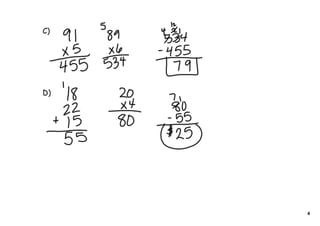 c) 91 5 89 4 12 1 534
x5 x6 - 455
455 534 79
D) 1 18 20 7 1 80
22 x4 - 55
+ 15 80 $25
55
4